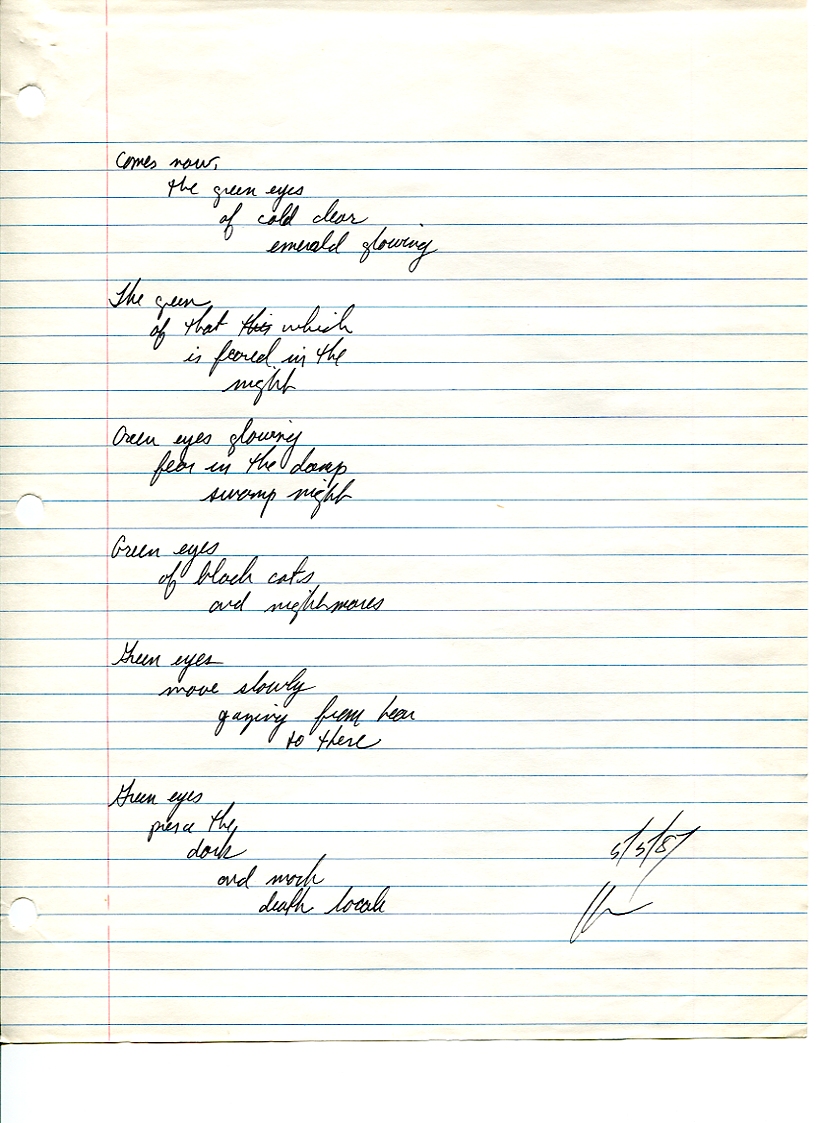 Comes now,
the green eyes
of cold clear
emerald glowing
The green
of that this which
is feared in the
night
Green eyes glowing
fear in the damp
swamp night
Green eyes
of black cats
and nightmares
Green eyes
move slowly
gazing from hear
to there
Green eyes
pierce the
dark
and mock
death
5/5/87